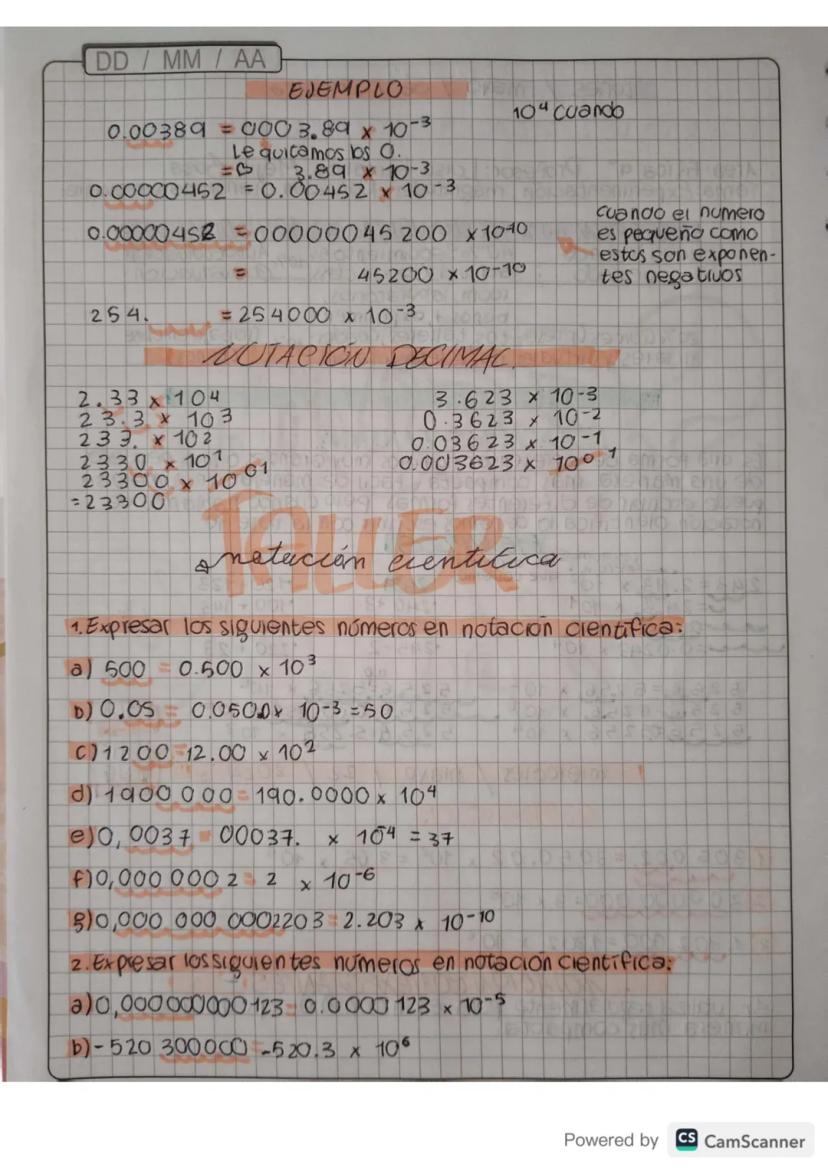 DD / MM / AA
EJEMPLO
10⁴ cuando
0.00389 = 0003.89 x 10⁻³
Le quitamos los 0.
= 3.89 x 10⁻³
0.00000452 = 0.00452 x 10⁻³
0.00000452 = 00000045200 x 10⁻¹⁰
= 45200 x 10⁻¹⁰
cuando el numero
es pequeño como
estos son exponen-
tes negativos
254. = 254000 x 10⁻³
NOTACIÓN DECIMAL.
2.33 x 10⁴
23.3 x 10³
233. x 10²
2330 x 10¹
23300 x 10⁰
= 23300
3.623 x 10⁻³
0.3623 x 10⁻²
0.03623 x 10⁻¹
0.003623 x 10⁰
TALLER
notación cientifica
1. Expresar los siguientes números en notación científica:
a) 500 = 0.500 x 10³
b) 0.05 = 0.0500x 10⁻³ = 50
c) 1200 = 12.00 x 10²
d) 1900 000 = 190.0000 x 10⁴
e) 0,0037 = 00037. x 10⁻⁴ = 37
f) 0,000 000 2 = 2 x 10⁻⁶
g) 0,000 000 0002203 = 2.203 x 10⁻¹⁰
2. Expresar los siguientes números en notación científica:
a) 0,000000000123 = 0.0000123 x 10⁻⁵
b) -520 300000 = -520.3 x 10⁶
Powered by CS CamScanner